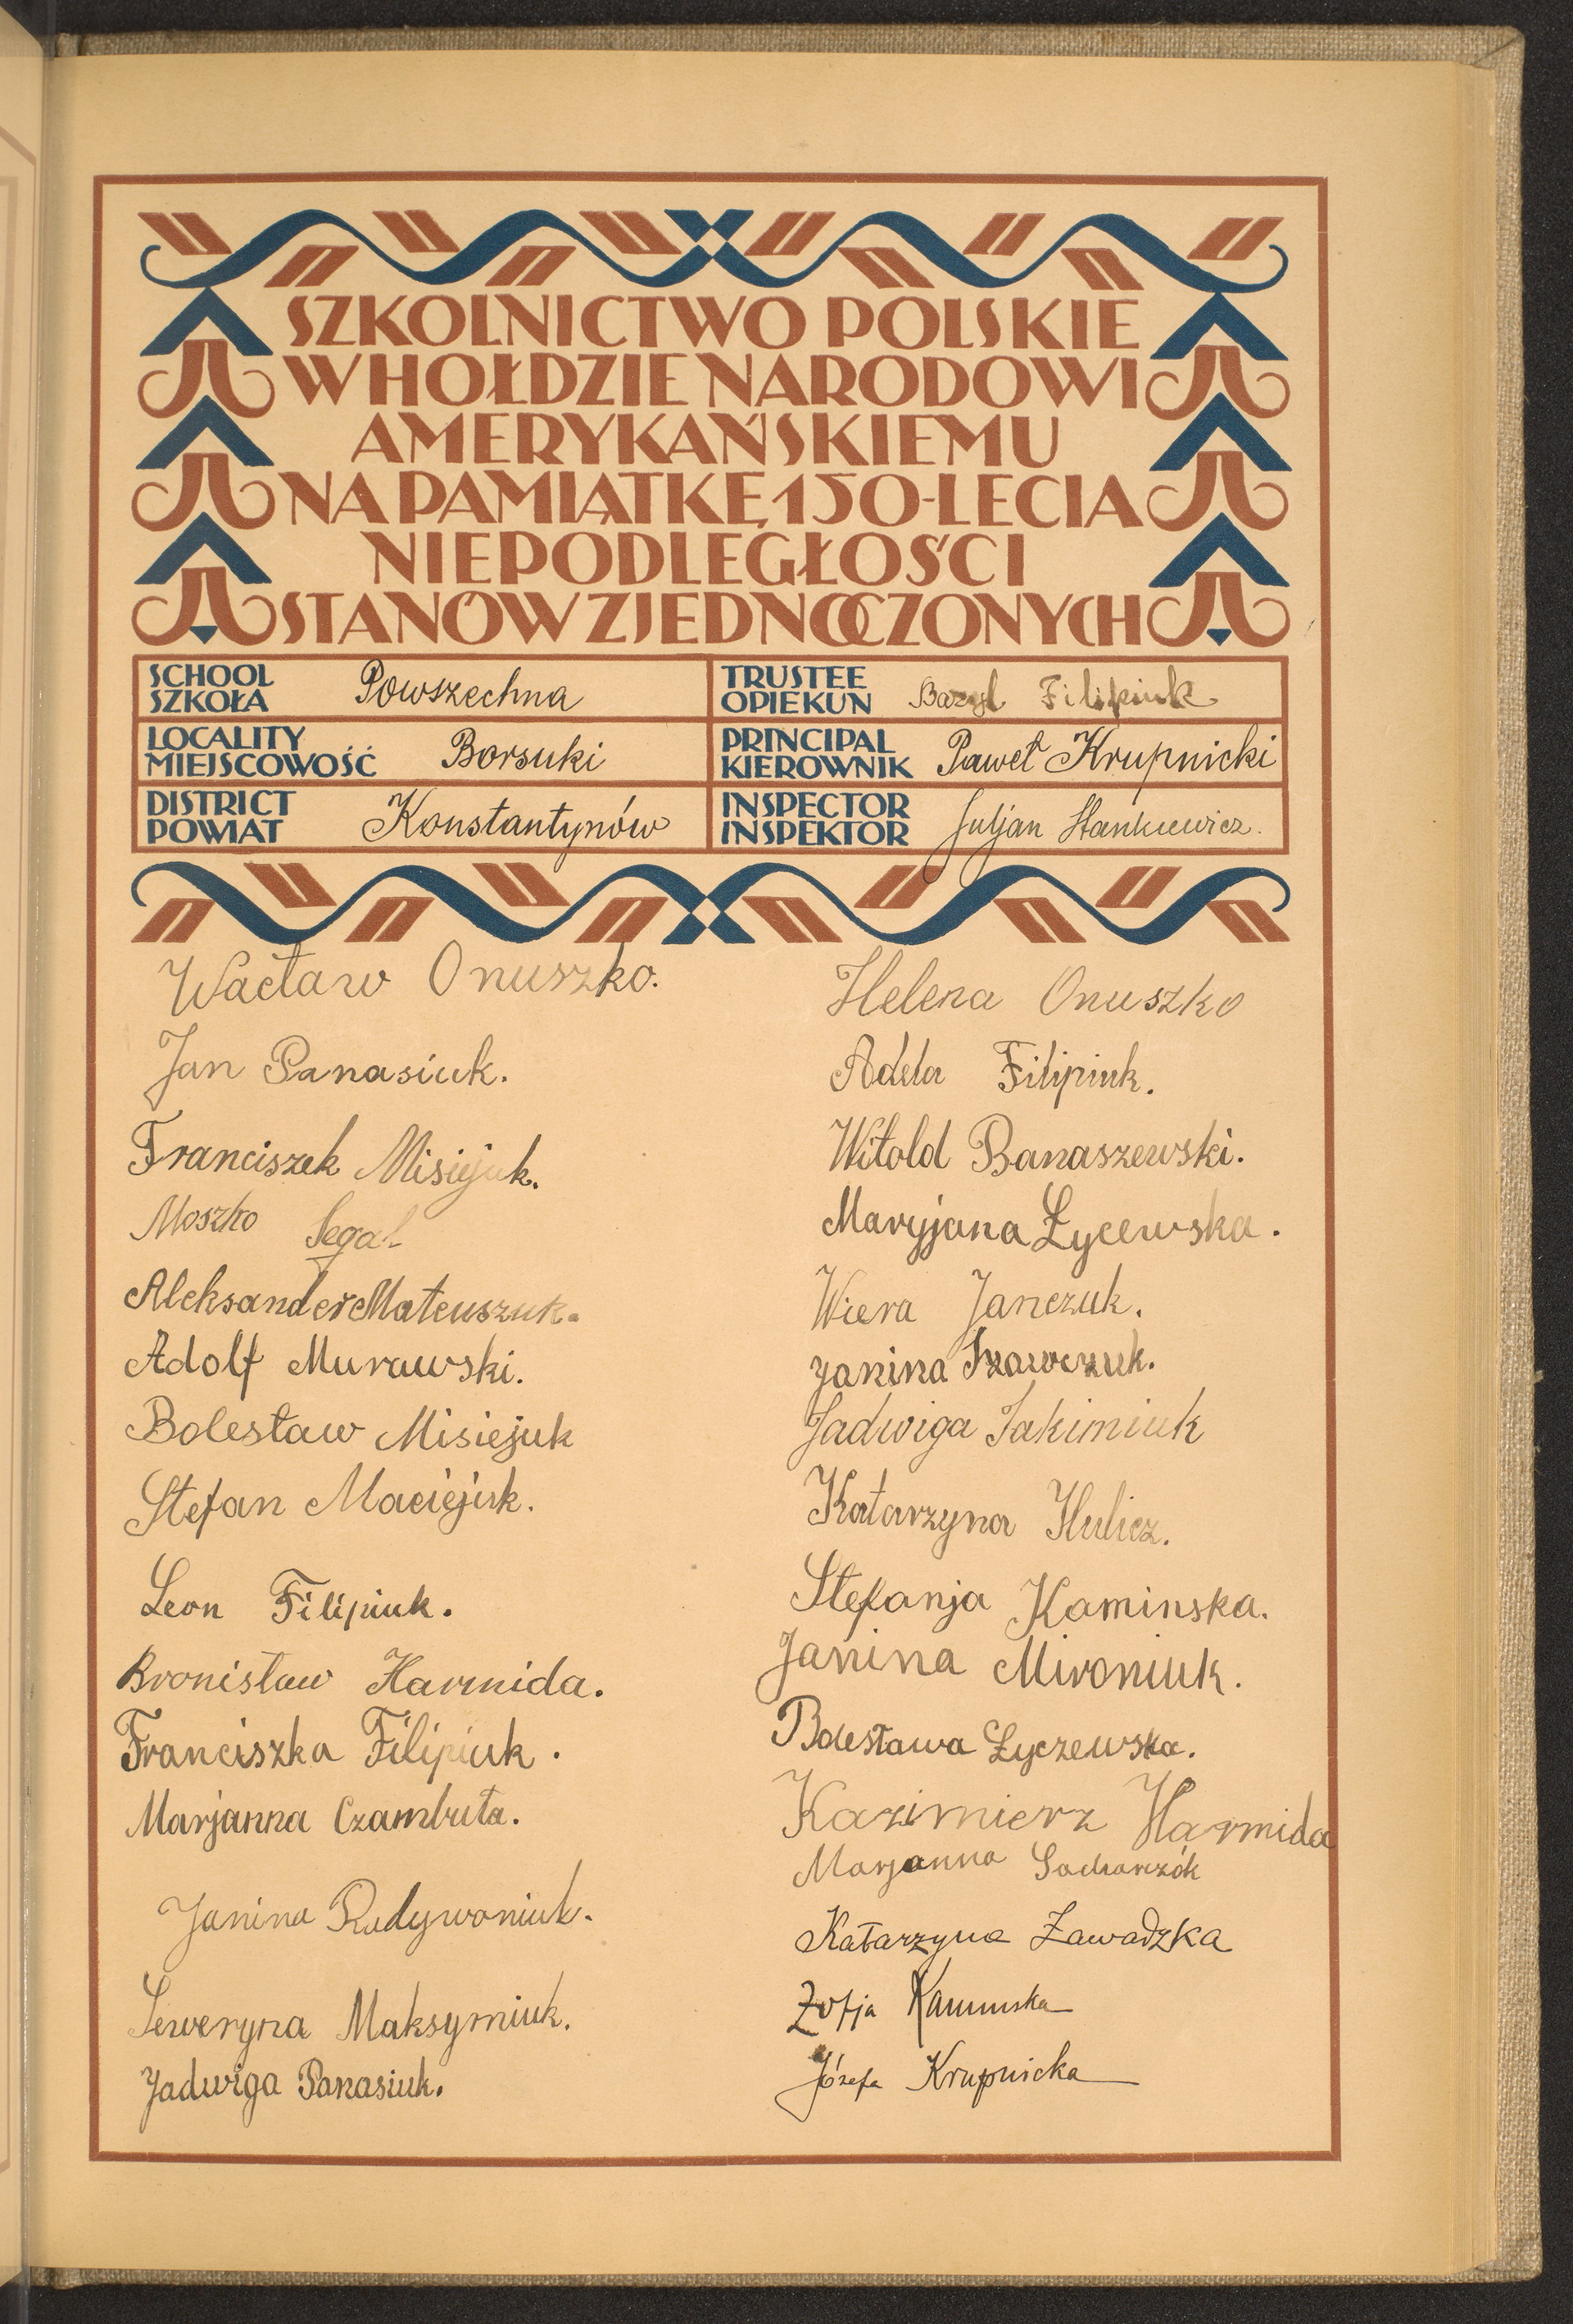 SZKOLNICTWO POLSKIE
W HOŁDZIE NARODOWI
AMERYKAŃSKIEMU
NA PAMIĄTKĘ 150-LECIA
NIEPODLEGŁOŚCI
STANÓW ZJEDNOCZONYCH
SCHOOL
SZKOŁA Powszechna
TRUSTEE
OPIEKUN Bazyl Filipiuk
LOCALITY
MIEJSCOWOŚĆ Borsuki
PRINCIPAL
KIEROWNIK Paweł Krupnicki
DISTRICT
POWIAT Konstantynów
INSPECTOR
INSPEKTOR Juljan Stankiewicz.
Wacław Onuszko.
Jan Panasiuk.
Franciszek Misiejuk.
Moszko Segal
Aleksander Mateuszuk.
Adolf Murawski.
Bolesław Misiejuk
Stefan Maciejuk.
Leon Filipiuk.
Bronisław Harmida.
Franciszka Filipiuk.
Marjanna Czambuła.
Janina Radywoniuk.
Seweryna Maksymiuk.
Jadwiga Panasiuk.
Helena Onuszko
Adela Filipiuk.
Witold Banaszewski.
Maryjana Łycewska.
Wiera Janczuk.
Janina Szawczuk.
Jadwiga Jakimiuk
Katarzyna Hulicz.
Stefanja Kaminska.
Janina Mironiuk.
Bolesława Łyczewska.
Kazimierz Harmida
Marjanna
Katarzyna Zawadzka
Zofja Kamińska
Józefa Krupnicka